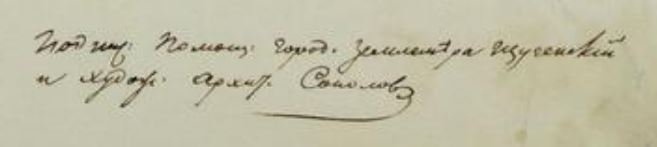 Подпис: Помощ: Город. Землемѣра Щученскій
и худож. Архит. Соколов